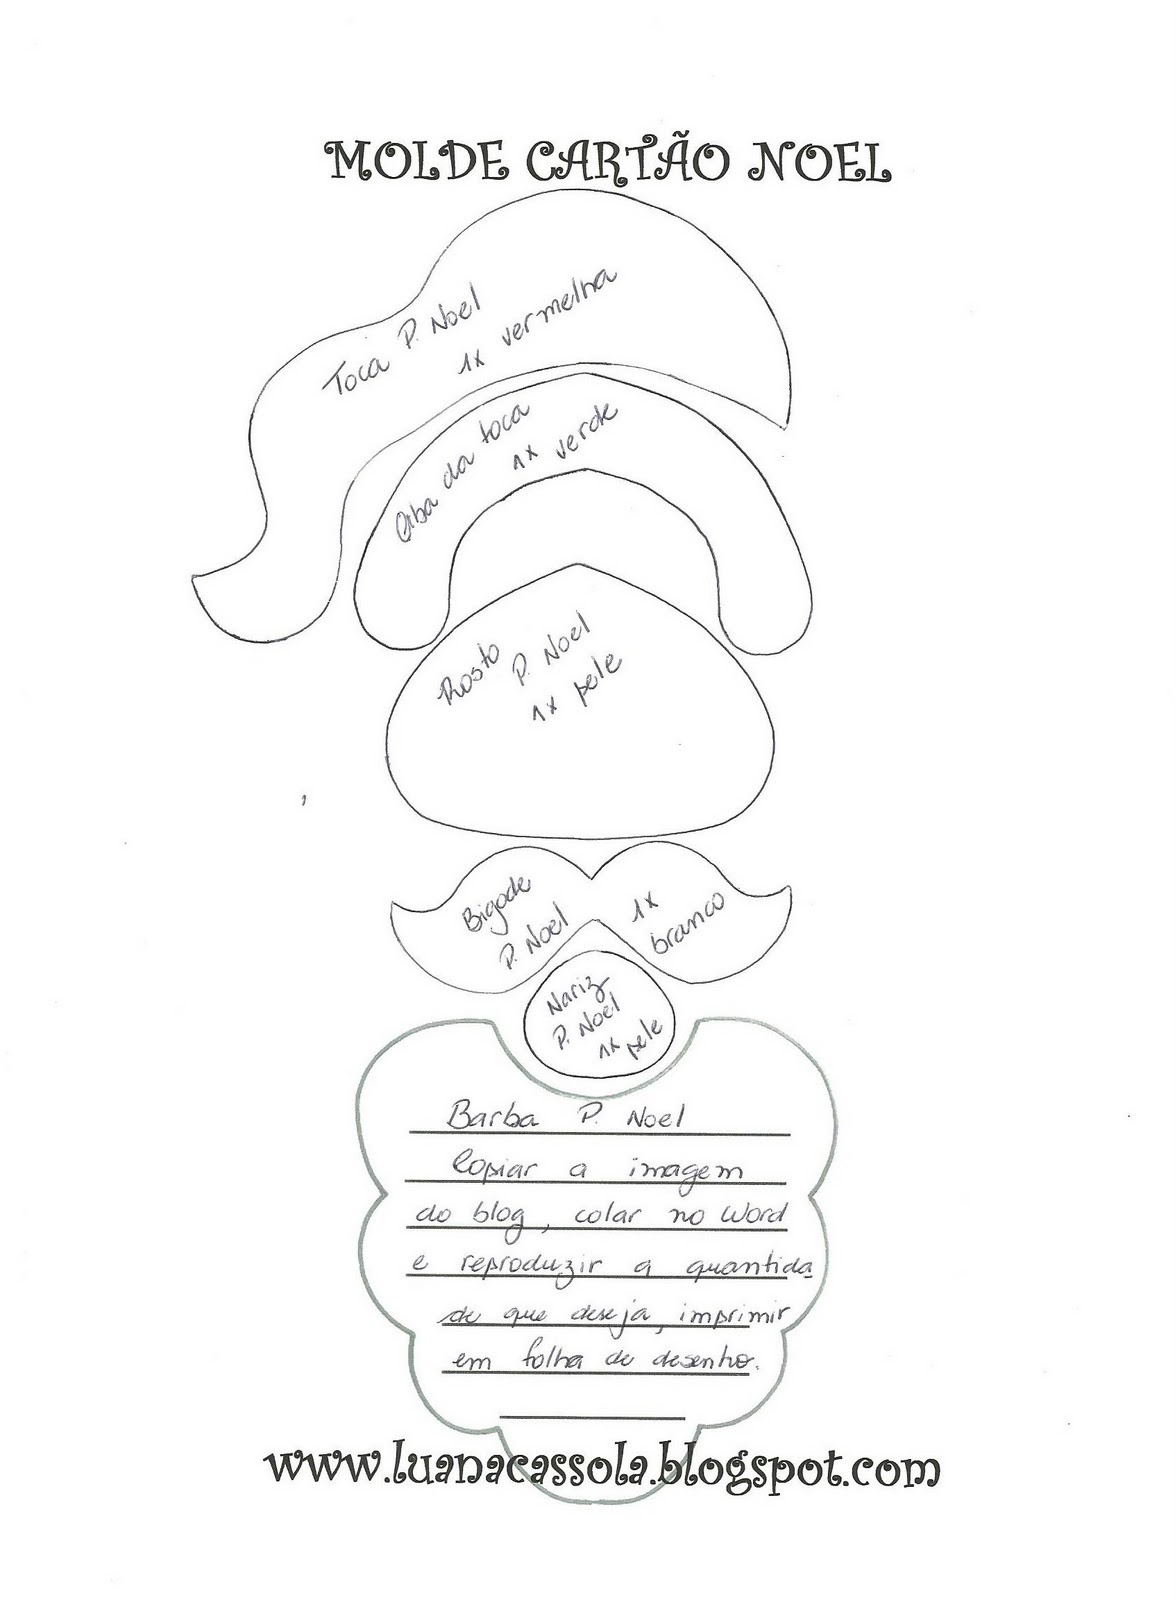 MOLDE CARTÃO NOEL
Toca P. Noel
1x vermelha
Aba da toca
1x verde
Rosto
P. Noel
1x pele
Bigode
P. Noel
1x
branco
Nariz
P. Noel
1x pele
Barba P. Noel
Copiar a imagem
do blog, colar no Word
e reproduzir a quantida
de que deseja, imprimir
em folha de desenho.
www.luanacassola.blogspot.com